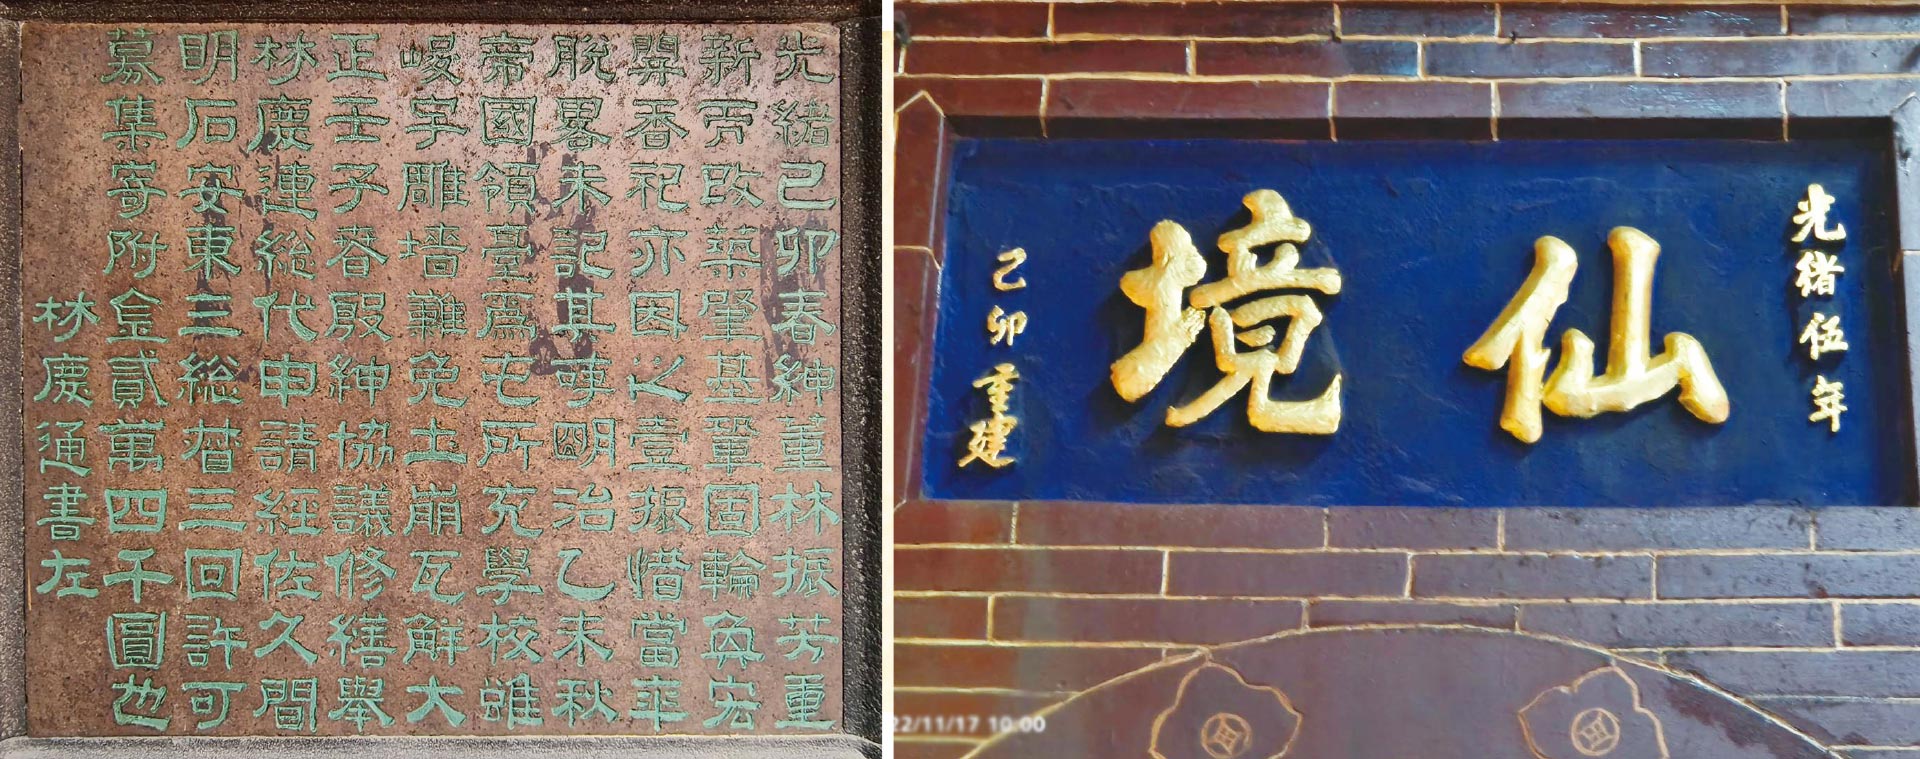 光緒己卯春紳董林振芳重
新另改築肈基鞏固輪奐宏
香祀亦因以壹振惜當
脫畧未記其時明治乙未秋
帝國領臺為屯所充學校雖
峻宇雕墻難免土崩瓦解大
正壬子春殿紳協議修繕舉
林慶連總代申請經佐久間
明石安東三總督三回許可
募集寄附金貳萬四千圓也
林慶通書左
光緒伍年
仙境
己卯重建
22/11/17 10:00